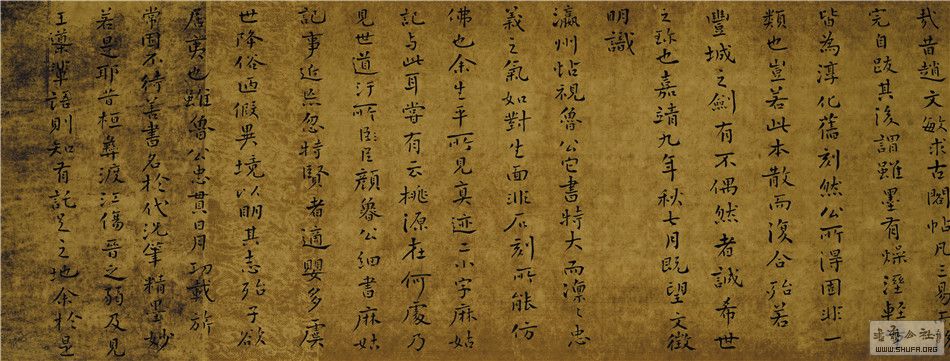 哉昔趙文敏求古閣帖凡三易
完自跋其後謂雖墨有燥溼輕
皆為淳化舊刻然公所得固非一
類也豈若此本散而復合殆若
豐城之劍有不偶然者誠希世
之珎也嘉靖九年秋七月既望文徵
明識
瀛州帖視魯公它書特大而凜之忠
義之氣如對生面非石刻所能仿
佛也余生平所見真迹二小字麻姑
記与此耳嘗有云桃源在何處乃
見世道汙所臣顏魯公細書麻姑
記事近怳忽特賢者適嬰多虞
世降俗洒假異境以明其志殆子欲
居夷也雖魯公忠貫日月功載旂
常固不待善書名於代況筆精墨妙
若是耶昔桓彝渡江傷晉之弱及見
王導輩語則知有託足之地余於是
WWW.SHUFA.ORG